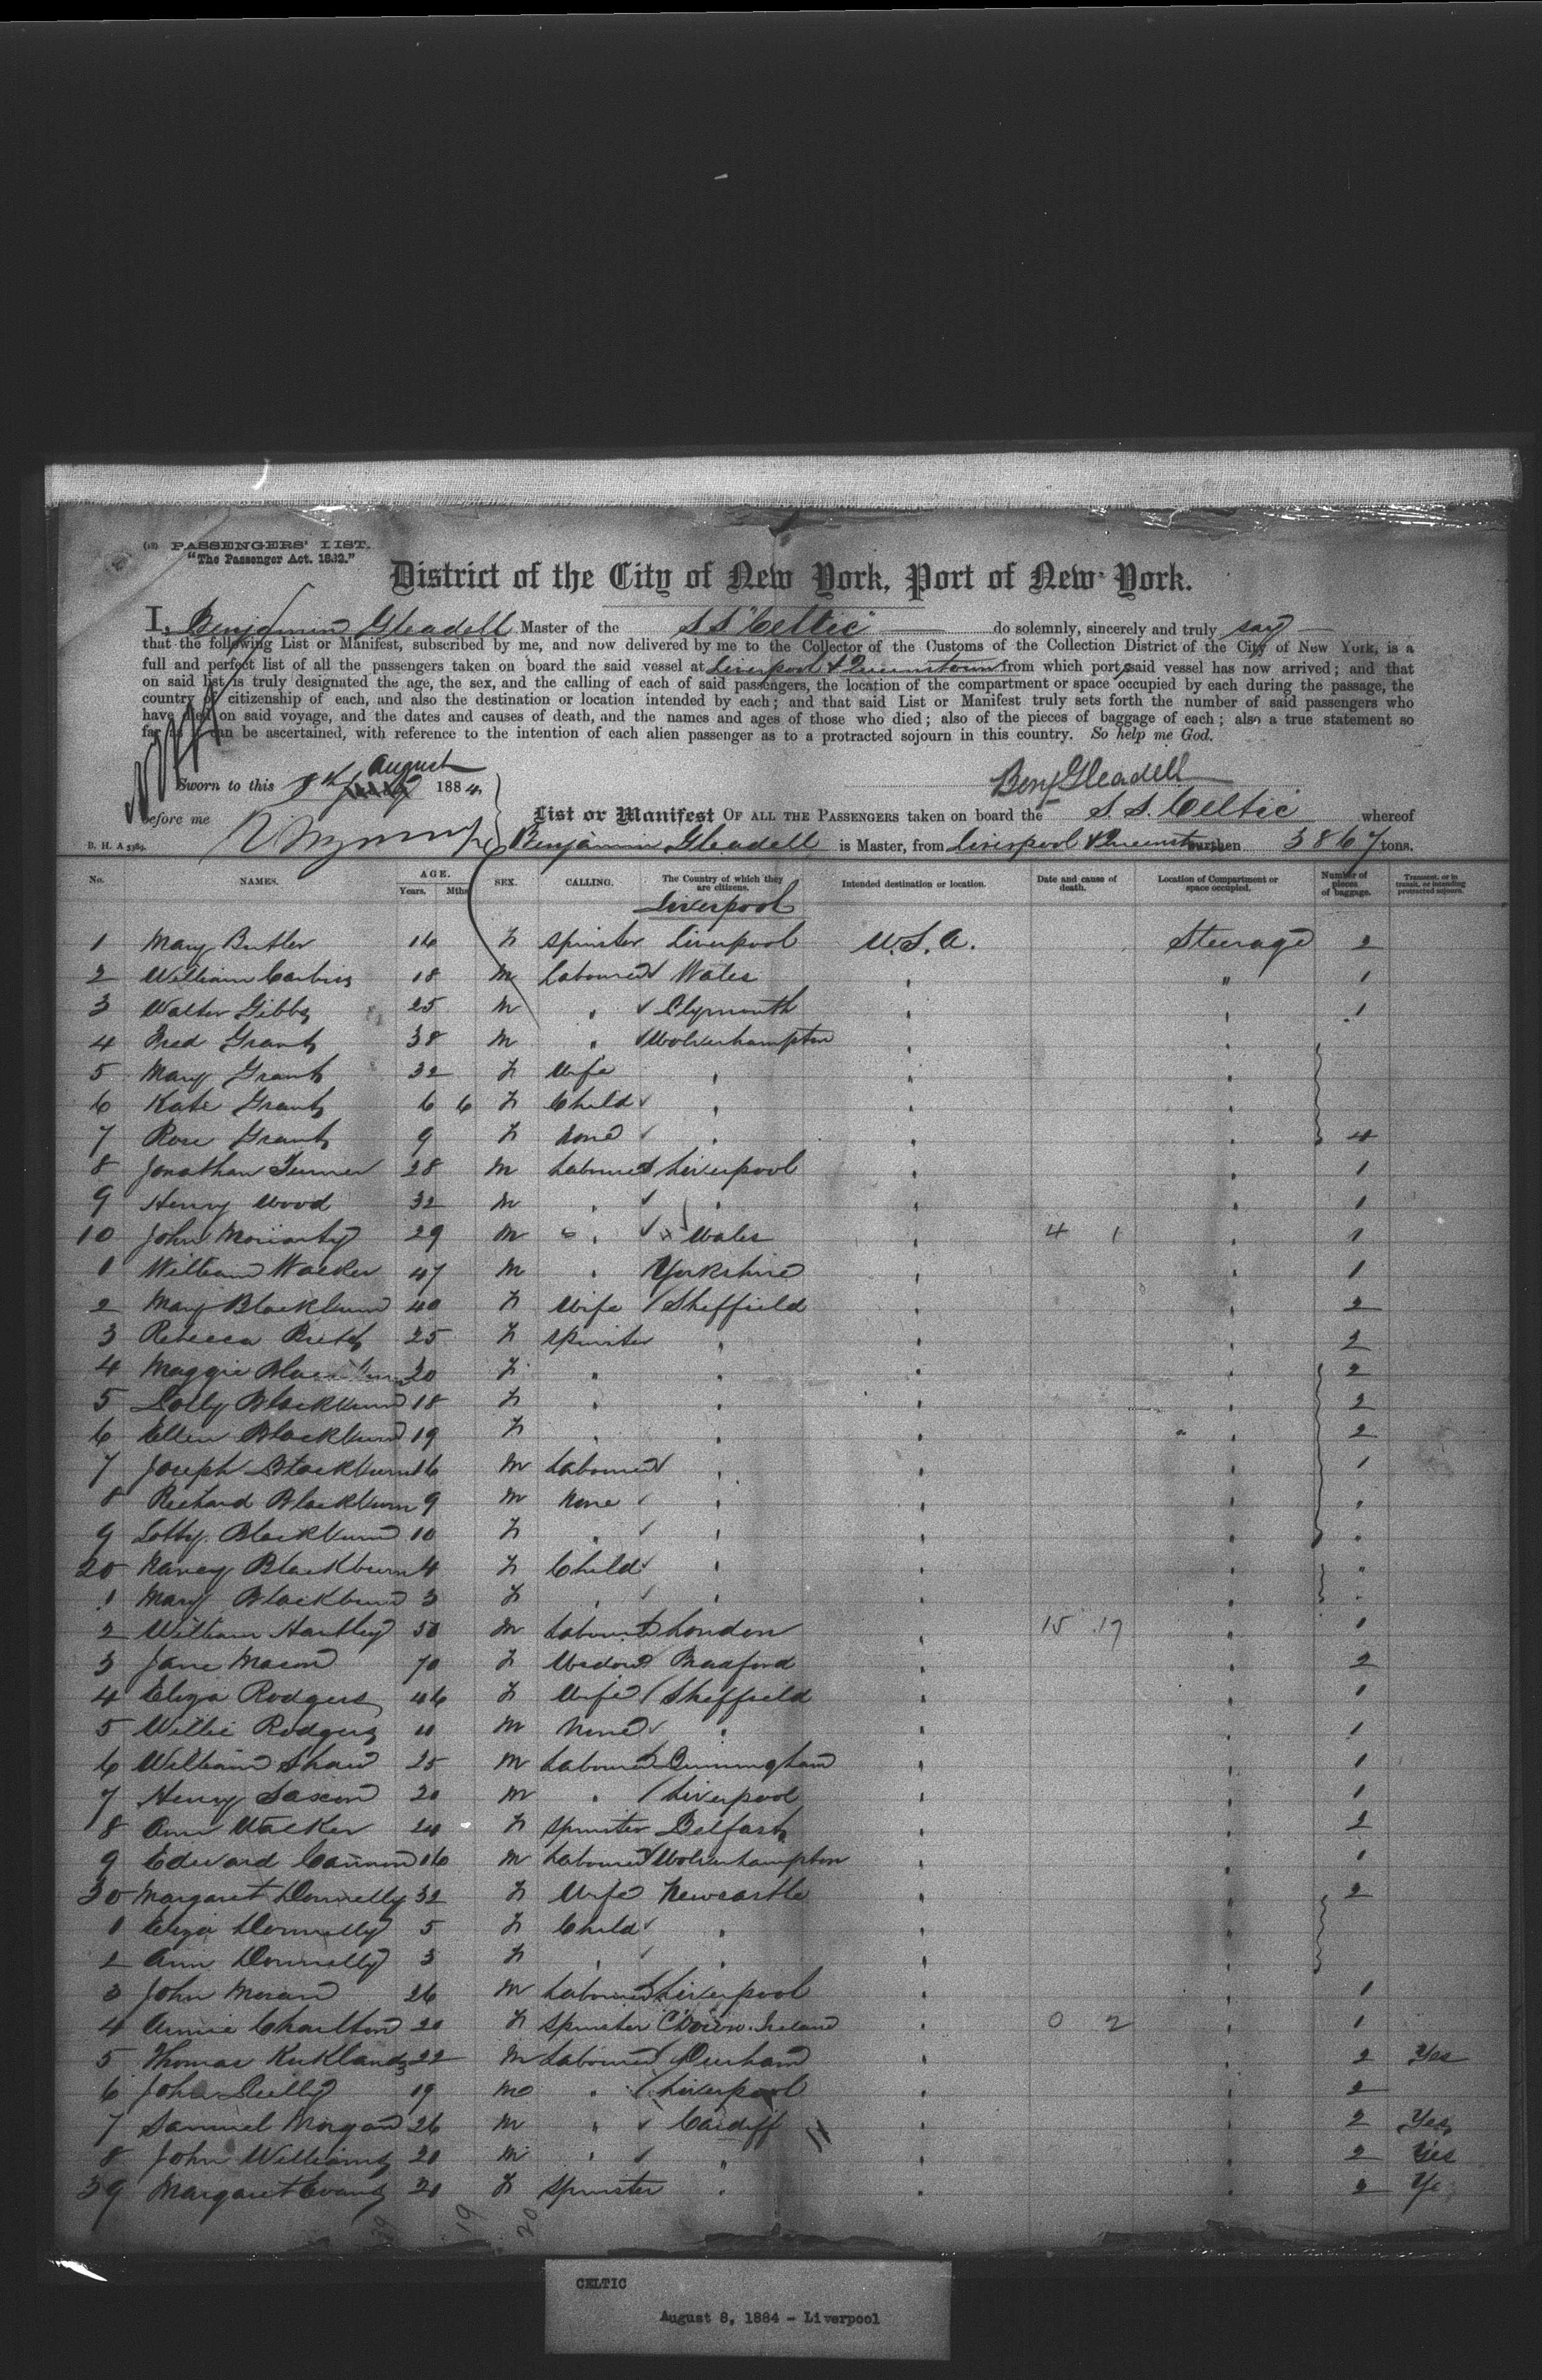 (18) PASSENGERS' LIST.
"The Passenger Act. 1882."
District of the City of New York, Port of New York.
I, Benjamin Gleadell Master of the S S "Celtic" do solemnly, sincerely and truly say
that the following List or Manifest, subscribed by me, and now delivered by me to the Collector of the Customs of the Collection District of the City of New York, is a
full and perfect list of all the passengers taken on board the said vessel at Liverpool & Queenstown from which ports said vessel has now arrived; and that
on said list is truly designated the age, the sex, and the calling of each of said passengers, the location of the compartment or space occupied by each during the passage, the
country of citizenship of each, and also the destination or location intended by each; and that said List or Manifest truly sets forth the number of said passengers who
have died on said voyage, and the dates and causes of death, and the names and ages of those who died; also of the pieces of baggage of each; also a true statement so
far as it can be ascertained, with reference to the intention of each alien passenger as to a protracted sojourn in this country. So help me God.
Sworn to this 8th August 1884
Benj Gleadell
before me
List or Manifest OF ALL THE PASSENGERS taken on board the S. S. Celtic whereof
B. H. A
Benjamin Gleadell is Master, from Liverpool & Queenst burthen 3867 tons.
No. NAMES. AGE. Years. Mths SEX. CALLING. The Country of which they are citizens. Intended destination or location. Date and cause of death. Location of Compartment or space occupied. Number of pieces of baggage. Transient, or in transit, or intending protracted sojourn.
Liverpool
1 Mary Butler 16 F Spinster Liverpool U.S.A. Steerage 2
2 William 18 M Labourer Wales " 1
3 Walter Gibbs 25 M " Plymouth " " 1
4 Fred Grant 38 M " Wolverhampton " "
5 Mary Grant 32 F Wife " " "
6 Kate Grant 6 6 F Child " " "
7 Rose Grant 9 F None " " " 4
8 Jonathan Turner 28 M Labourer Liverpool " " 1
9 Henry Wood 32 M " " " " 1
10 John Moriarty 29 M " Wales " 4 1 " 1
1 William Walker 47 M " Yorkshire " " 1
2 Mary Blackburn 40 F Wife Sheffield " " 2
3 Rebecca 25 F Spinster " " " 2
4 Maggie Blackburn 20 F " " " " 2
5 Dolly Blackburn 18 F " " " " 2
6 Ellen Blackburn 19 F " " " " 2
7 Joseph Blackburn 16 M Labourer " " " 1
8 Richard Blackburn 9 M None " " " "
9 Lotty Blackburn 10 F " " " " "
20 Nancy Blackburn 4 F Child " " " "
1 Mary Blackburn 3 F " " " " "
2 William Hartley 50 M Labourer London " 15 17 " 1
3 Jane Mason 70 F Widow Bradford " " 2
4 Eliza Rodgers 46 F Wife Sheffield " " 1
5 Willie Rodgers 11 M None " " " 1
6 William Shaw 25 M Labourer Birmingham " " 1
7 Henry Saxon 20 M " Liverpool " " 1
8 Ann Walker 24 F Spinster Belfast " " 2
9 Edward Cannon 16 M Labourer Wolverhampton " " 1
30 Margaret Donnelly 32 F Wife Newcastle " " 2
1 Eliza Donnelly 5 F Child " " "
2 Ann Donnelly 3 F " " " "
3 John Moran 26 M Labourer Liverpool " " 1
4 Annie Charlton 20 F Spinster C'Down Ireland " 0 2 " 1
5 Thomas Kirkland 22 M Labourer Durham " " 2 Yes
6 John 19 M " Liverpool " " 2
7 Samuel Morgan 26 M " Cardiff " " 2 Yes
8 John Williams 20 M " " " " 2 Yes
39 Margaret Evans 20 F Spinster " " " 2 Ye
19 20
CELTIC
August 8, 1884 - Liverpool